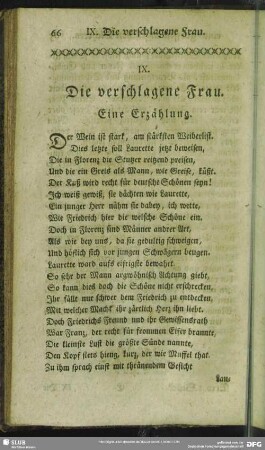 66 IX. Die verschlagene Frau.
IX.
Die verschlagene Frau.
Eine Erzählung.
Der Wein ist stark, am stärksten Weiberlist.
Dies letzte soll Laurette jetzt beweisen,
Die in Florenz die Stutzer reitzend preisen,
Und die ein Greis als Mann, wie Greise, küßt.
Der Kuß wird recht für deutsche Schönen seyn!
Ich weiß gewiß, sie dächten wie Laurette,
Ein junger Herr nähm sie dabey, ich wette,
Wie Friedrich hier die welsche Schöne ein.
Doch in Florenz sind Männer andrer Art,
Als wie bey uns, da sie gedultig schweigen,
Und höflich sich vor jungen Schwägern beugen.
Laurette ward aufs eifrigste bewahrt.
So sehr der Mann argwöhnisch Achtung giebt,
So kann dies doch die Schöne nicht erschrecken,
Ihr fällt nur schwer dem Friedrich zu entdecken,
Mit welcher Macht ihr zärtlich Herz ihn liebt.
Doch Friedrichs Freund und ihr Gewissensrath
War Franz, der recht für frommen Eifer brannte,
Die kleinste Lust die größte Sünde nannte,
Den Kopf stets hieng, kurz, der wie Muffel that.
Zu ihm sprach einst mit thränendem Gesicht
Lau-
SLUB
DFG